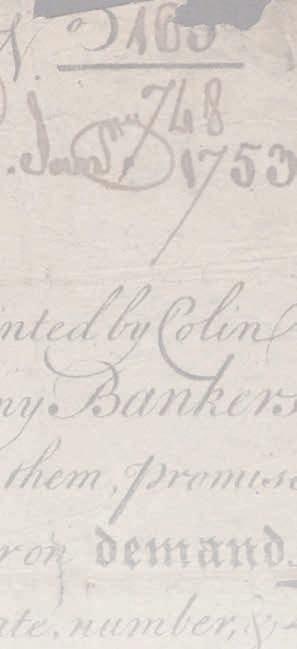 N.º 5163
748
Jan.ry 1753
inted by Colin
ny Bankers
them, promise
or on demand
ate, number, &